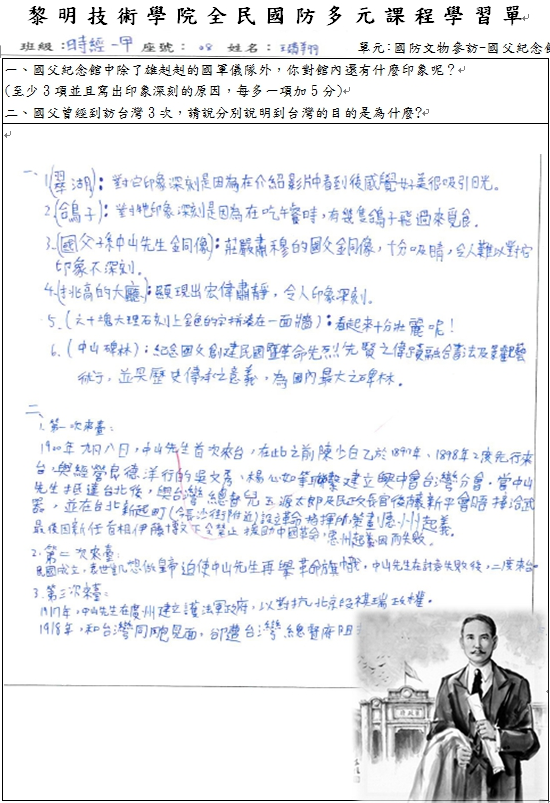 黎明技術學院全民國防多元課程學習單
班級：時經一甲 座號：08 姓名： 單元：國防文物參訪-國父紀念館
一、國父紀念館中除了雄赳赳的國軍儀隊外，你對館內還有什麼印象呢？
(至少3項並且寫出印象深刻的原因，每多一項加5分)
二、國父曾經到訪台灣3次，請說分別說明到台灣的目的是為什麼?
一、
1.(翠湖)：對它印象深刻是因為在介紹影片中看到後感覺好美很吸引目光。
2.(鴿子)：對牠印象深刻是因為在吃午餐時，有幾隻鴿子飛過來覓食。
3.(國父孫中山先生金同像)：莊嚴肅穆的國父金同像，十分吸睛，令人難以對它
印象不深刻。
4.(挑高的大廳)：顯現出宏偉肅靜，令人印象深刻。
5.(六十塊大理石刻上金色的字拼湊在一面牆)：看起來十分壯麗呢！
6.(中山碑林)：紀念國父創建民國暨革命先烈先賢之偉蹟融合書法及篆藝
術，並具歷史傳承之意義，為國內最大之碑林。
二、
1.第一次來臺：
1900年九月八日，中山先生首次來台，在此之前陳少白已於1897年、1898年2度先行來
台，與經營良德洋行的吳文秀、楊心如等聯繫建立興中會台灣分會。當中山
先生抵達台北後，與台灣總督兒玉源太郎及民政長官後藤新平會晤接洽武
器，並在台北新起町(今長沙街附近)設立革命指揮所策劃惠州起義。
最後因新任首相伊藤博文下令禁止援助中國革命，惠州起義因而失敗。
2.第二次來臺：
民國成立，袁世凱想做皇帝迫使中山先生再舉革命旗幟，中山先生在討袁失敗後，二度來台。
3.第三次來臺：
1917年，中山先生在廣州建立護法軍政府，以對抗北京段祺瑞政權。
1918年，和台灣同胞見面，卻遭台灣總督府阻